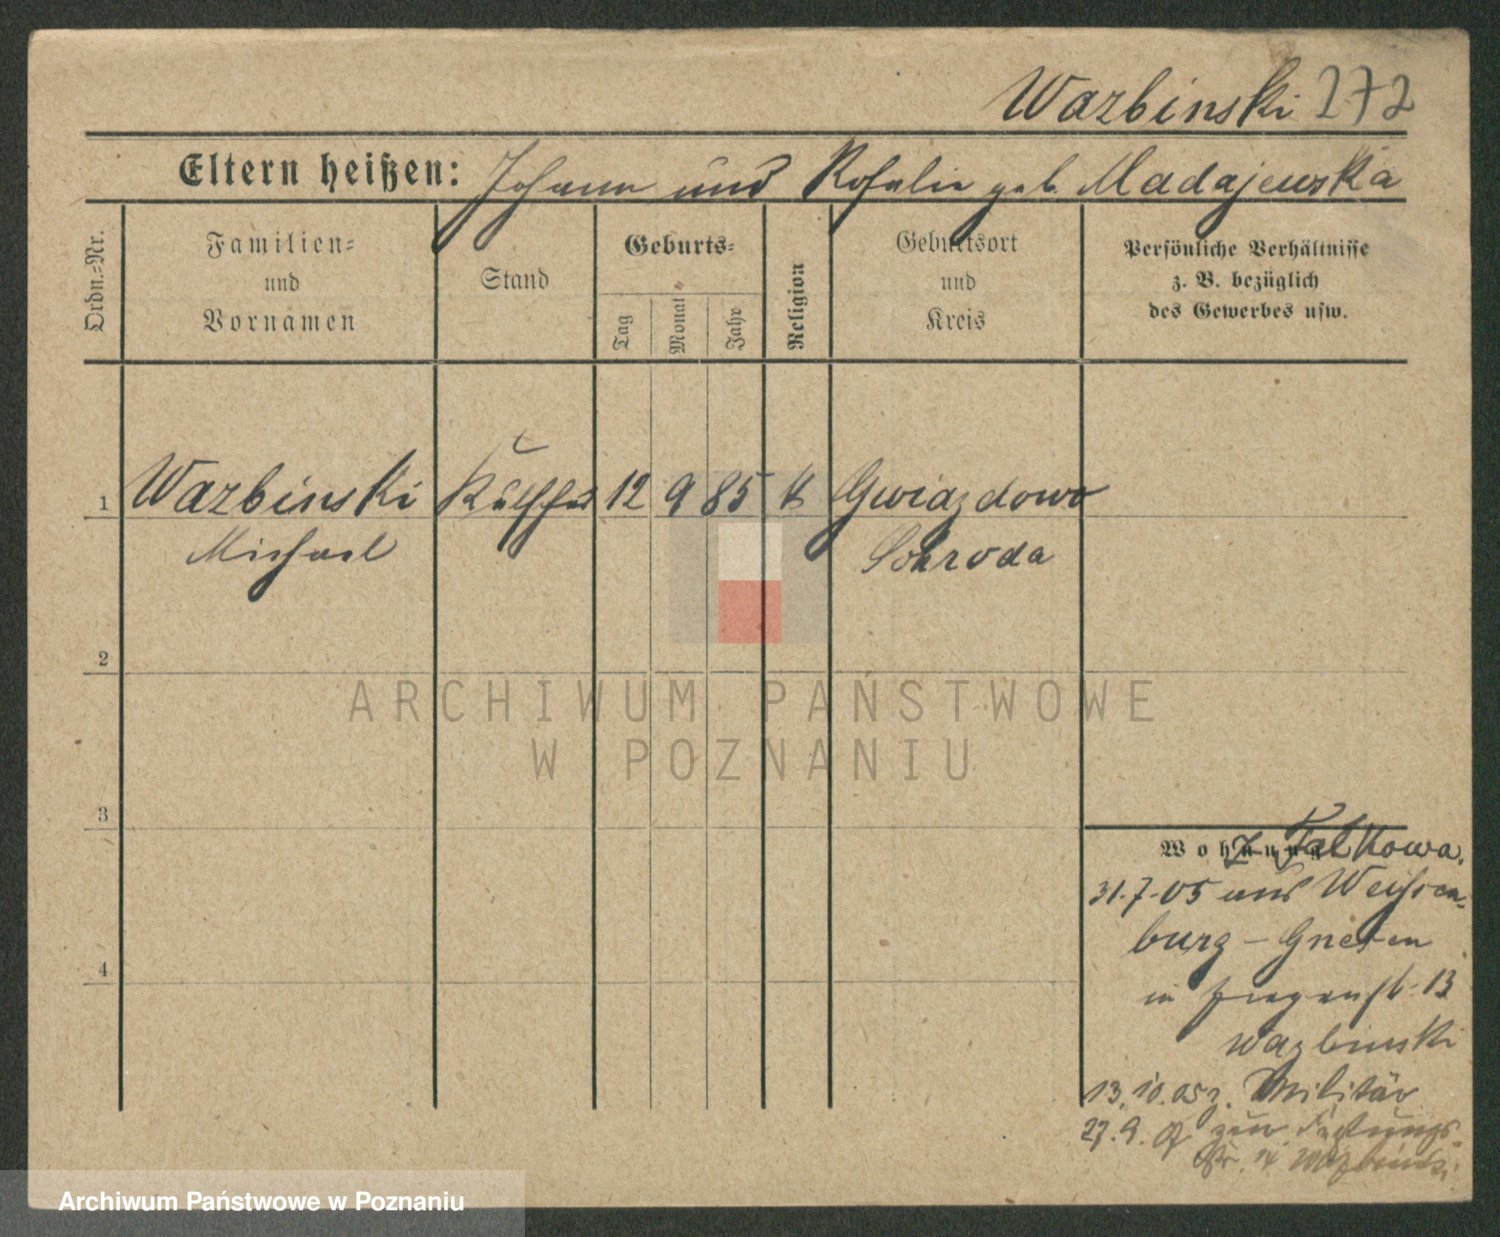 Wazbinski 272
Eltern heißen: Johann und Rosalie geb. Madajewska
Ordn.=Nr.
Familien=
und
Vornamen
Stand
Geburts=
Tag
Monat
Jahr
Religion
Geburtsort
und
Kreis
Persönliche Verhältnisse
z. B. bezüglich
des Gewerbes usw.
1 Wazbinski 12 9 85 k Gwiazdowo
Michael Schroda
2
3
4
Wohnung
31.7.05 aus Weißen-
burg - Gnesen
in 13
Wazbinski
13.10.05 z. Militär
27.9. 07 zur Festungs-
Wazbinski
ARCHIWUM PAŃSTWOWE
W POZNANIU
Archiwum Państwowe w Poznaniu